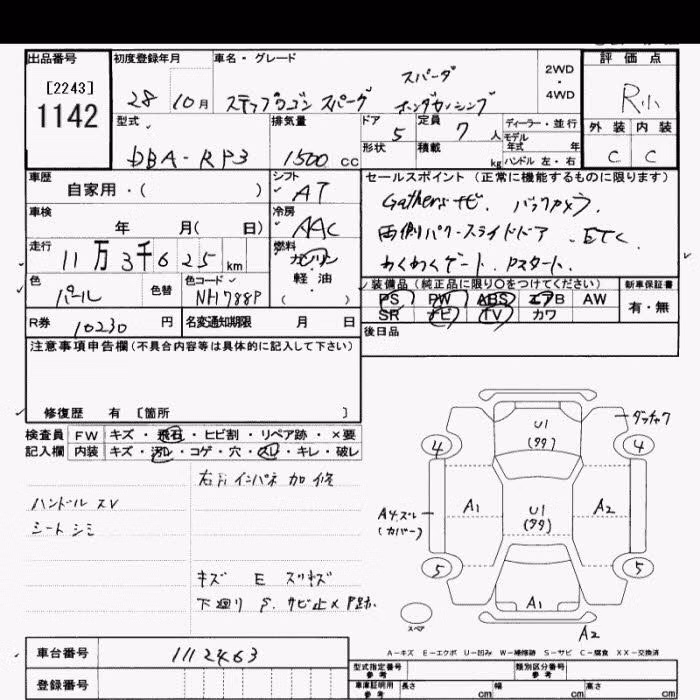 出品番号 初度登録年月 車名・グレード 評価点
[2243] スパーダ 2WD
1142 28 10月 ステップワゴン スパーダ ホンダセンシング ・4WD R小
型式 排気量 ドア 定員 ディーラー・並行 外装 内装
DBA-RP3 1500cc 5 7人 モデル年式 年 C C
形状 積載 kg ハンドル 左・右
車歴 シフト セールスポイント (正常に機能するものに限ります)
自家用・( ) AT Gathersナビ、バックカメラ、
車検 冷房 両側パワースライドドア、ETC、
年 月( 日) AAC わくわくゲート、Pスタート、
走行 燃料
11万3千625km ガソリン
色 色替 色コード 軽油 装備品 (純正品に限り○をつけてください) 新車保証書
パール NH788P ( ) PS PW ABS エアB AW 有・無
R券 10230円 名変通知期限 月 日 SR ナビ TV カワ
注意事項申告欄(不具合内容等は具体的に記入して下さい) 後日品
修復歴 有 〔箇所 〕
検査員 FW キズ・飛石・ヒビ割・リペア跡・×要
記入欄 内装 キズ・汚レ・コゲ・穴・スレ・キレ・破レ
インパネ加修
ハンドルスレ
シートシミ
キズ E スリキズ
下廻り S、サビ止×P跡、
U1 ダッチャク
(タタ)
4 4
A1 U1 A2
A4.ズレ (タタ)
(カバー)
5 5
A1
スペア A2
A－キズ E－エクボ U－凹み W－補修跡 S－サビ C－腐食 XX－交換済
車台番号 1112463
登録番号
型式指定番号 参考 類別区分番号 参考
車庫証明用 参考 長さ cm 幅 cm 高さ cm